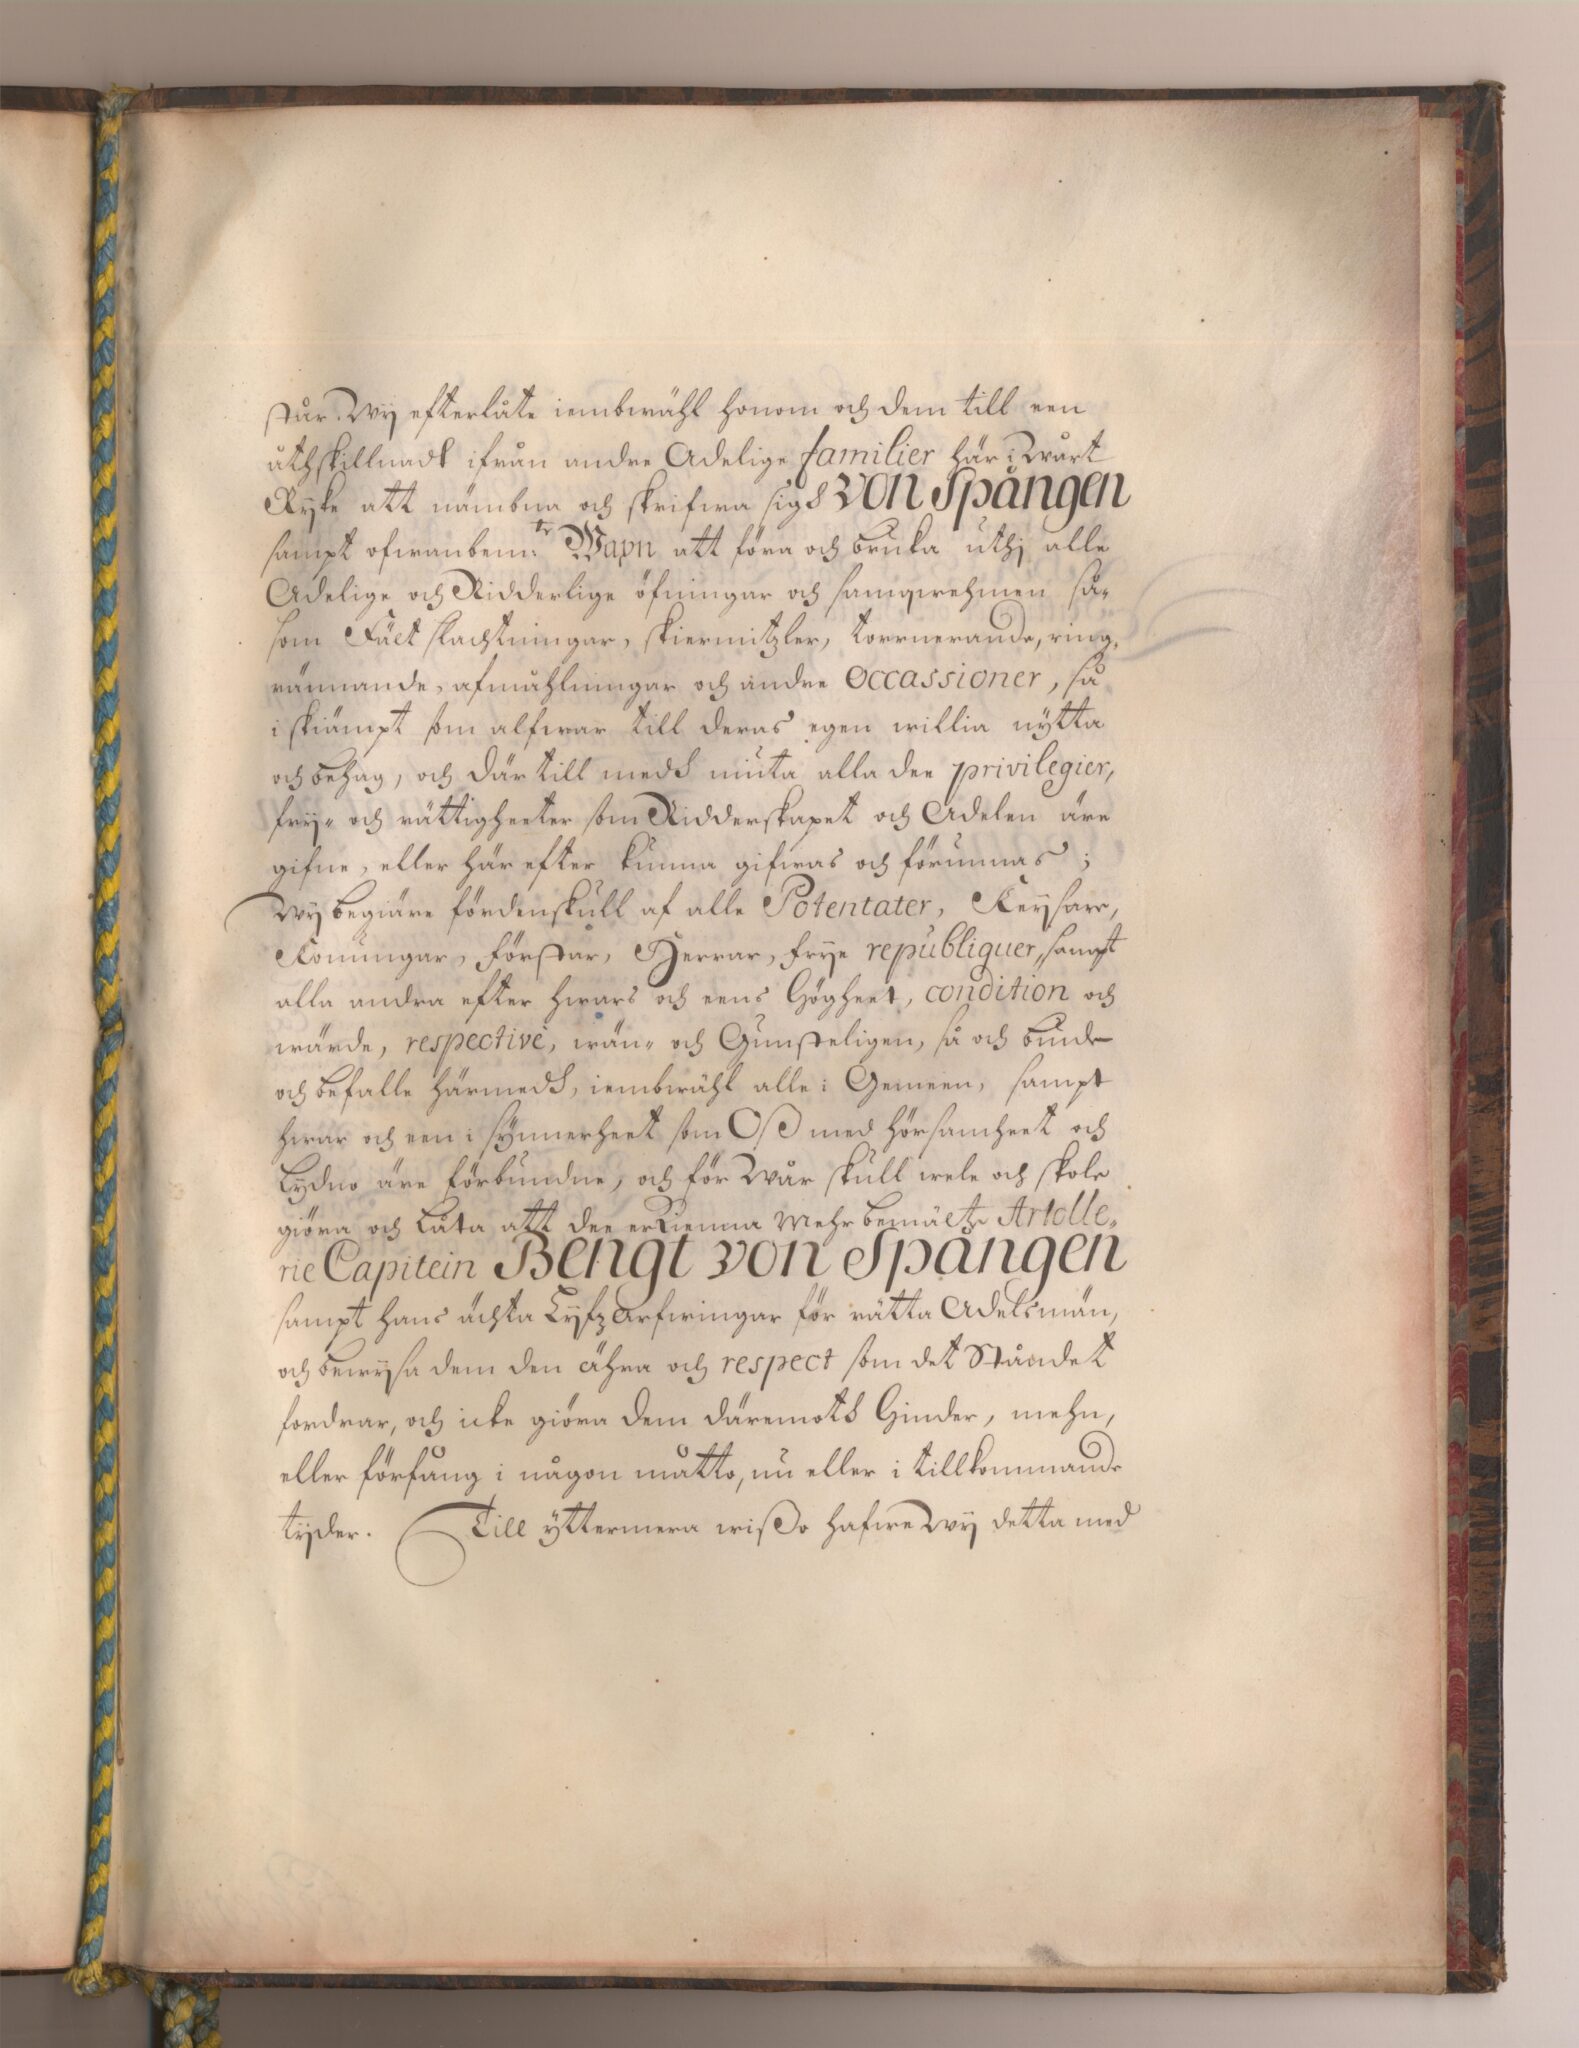 står. Wij efterlåte iembwähl honom och dem till een
åthskillnadt ifrån andre Adelige familier här i Wårt
Rijke att nämbna och skrifwa sigh von Spången
sampt ofwanbem:te Wapn att föra och bruka uthj alle
Adelige och Ridderlige öfningar och samqwehmen så-
som Fält slachtningar, skiermitzler, torrnerande, ring-
rännande, afmåhlningar och andre occassioner, så
i skiämpt som alfwar till deras egen willia nytta
och behag, och där till medh niuta alla dee privilegier,
frij- och rättigheeter som Ridderskapet och Adelen äre
gifne, eller här efter kunna gifwas och förunnas;
Wij begiäre fördenskull af alle Potentater, Keysare,
Konungar, Förstar, Herrar, frije republiquer, sampt
alla andra efter hwars och eens Högheet, condition och
wärde, respectivè, wän- och Gunsteligen, så och biude
och befalle härmedh, iembwähl alle i Gemeen, sampt
hwar och een i synnerheet som Oß med hörsamheet och
Lydno äre förbundne, och för Wår skull wele och skole
giöra och Låta att dee erkienna Mehrbemälte Artolle-
rie Capitein Bengt von Spången
sampt hans ächta Lijfz arfwingar för rätta Adelsmän,
och bewijsa dem den ähra och respect som det Ståndet
fordrar, och icke giöra dem däremoth Hinder, mehn,
eller förfång i någon måtto, nu eller i tillkommande
tijder. Till yttermera wißo hafwe Wij detta med